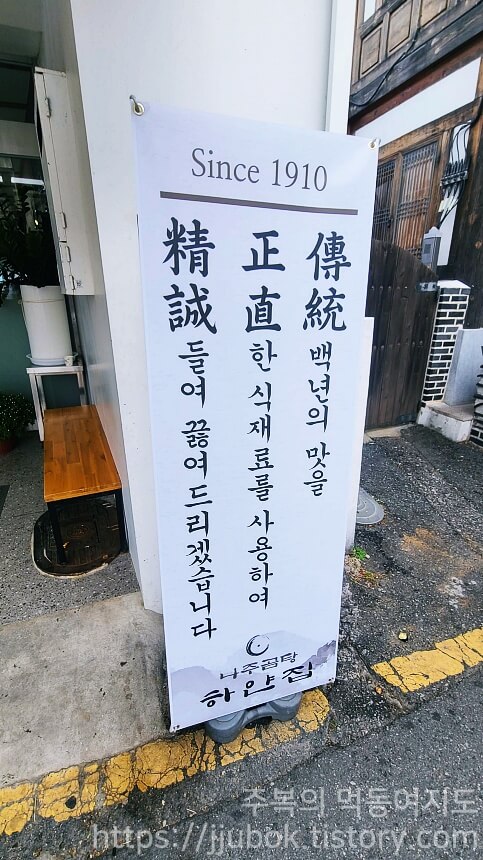 Since 1910
傳統 백년의 맛을
正直한 식재료를 사용하여
精誠들여 끓여 드리겠습니다
나주곰탕
하얀집
주복의 먹동여지도
https://jjubok.tistory.com